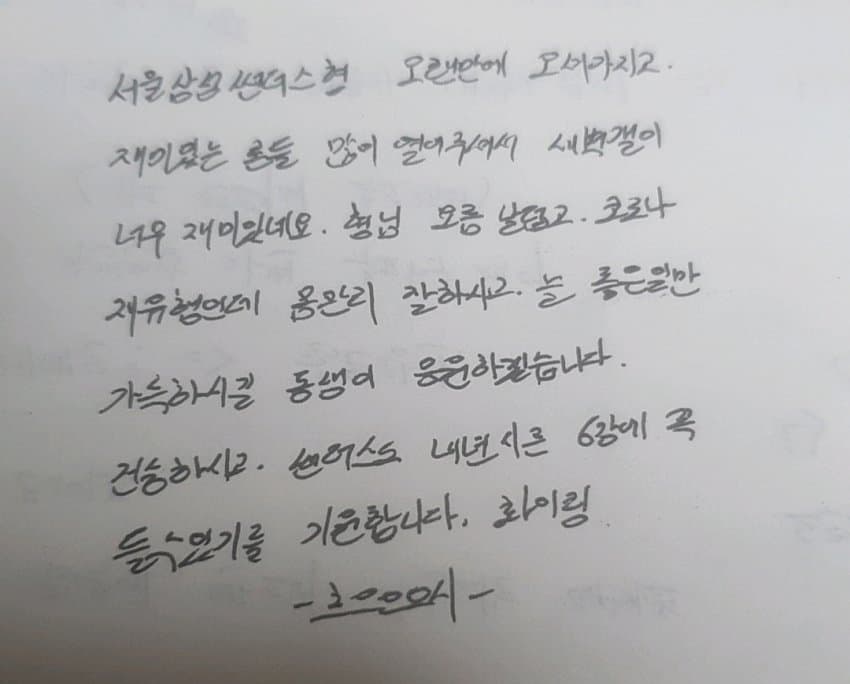 서울삼성썬더스형 오랜만에 오셔가지고.
재미있는 폰들 많이 열어주셔서 새벽갤이
너무 재미있네요. 형님 오름 날덥고. 코로나
재유행인데 몸관리 잘하시고. 늘 좋은일만
가득하시길 동생이 응원하겠습니다.
건승하시고. 썬더스도 내년시즌 6강에 꼭
들수있기를 기원합니다. 화이링